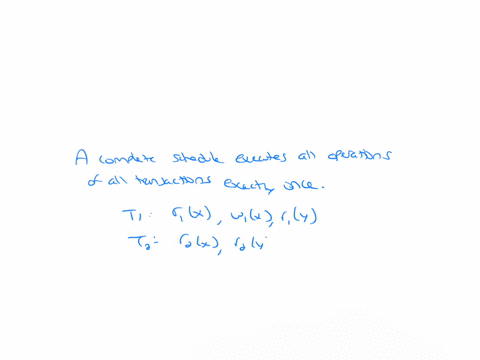 A complete schedule executes all operations
of all transactions exactly once.
T₁: r₁(x), w₁(x), r₁(y)
T₂: r₂(x), r₂(y